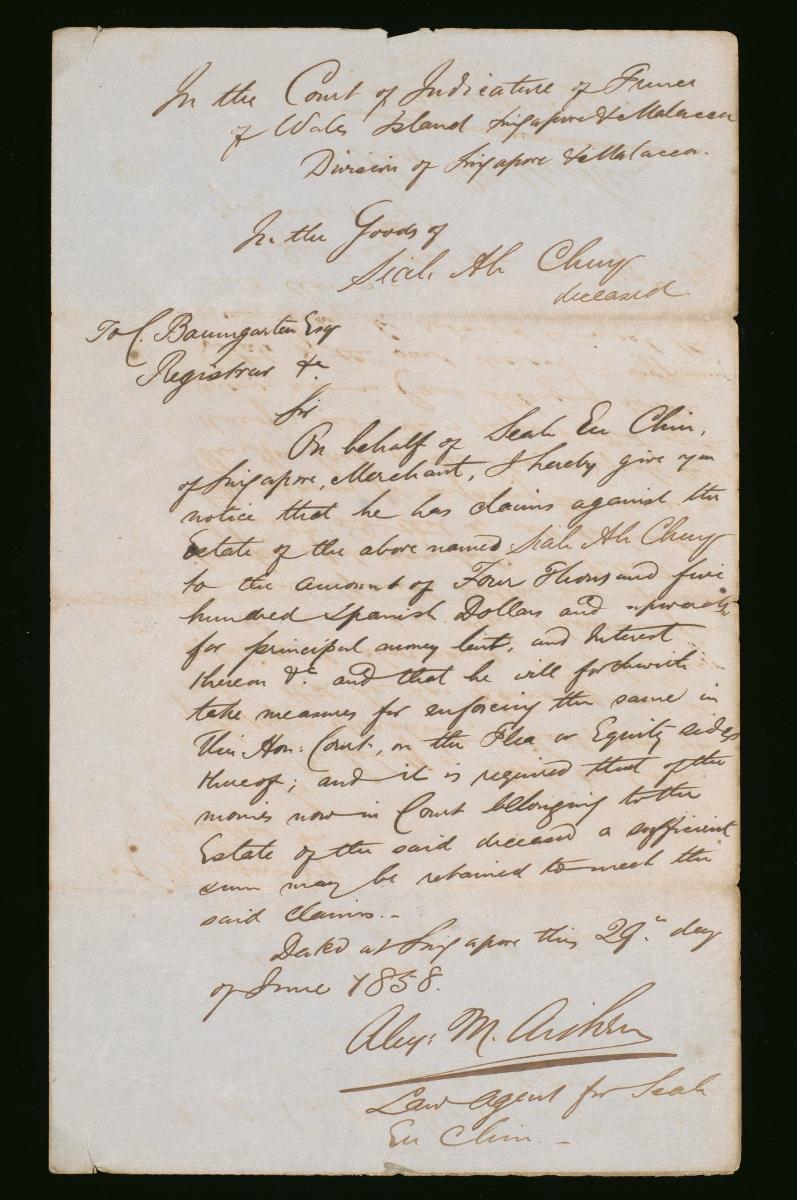 In the Court of Judicature of Prince
of Wales Island Singapore & Malacca
Division of Singapore & Malacca.
In the Goods of
Siah Ah Chuy
deceased
To C. Baumgarten Esq
Registrar &c
Sir
On behalf of Seah Eu Chin,
of Singapore, Merchant, I hereby give you
notice that he has claims against the
Estate of the above named Siah Ah Chuy
to the amount of Four Thousand five
hundred Spanish Dollars and upwards
for principal money lent, and Interest
thereon &c and that he will forthwith
take measures for enforcing the same in
this Hon: Court, on the Plea or Equity sides
thereof; and it is required that of the
monies now in Court belonging to the
Estate of the said deceased a sufficient
sum may be retained to meet the
said claims.-
Dated at Singapore this 29th day
of June 1858.
Alex: M. Aitken
Law Agent for Seah
Eu Chin -